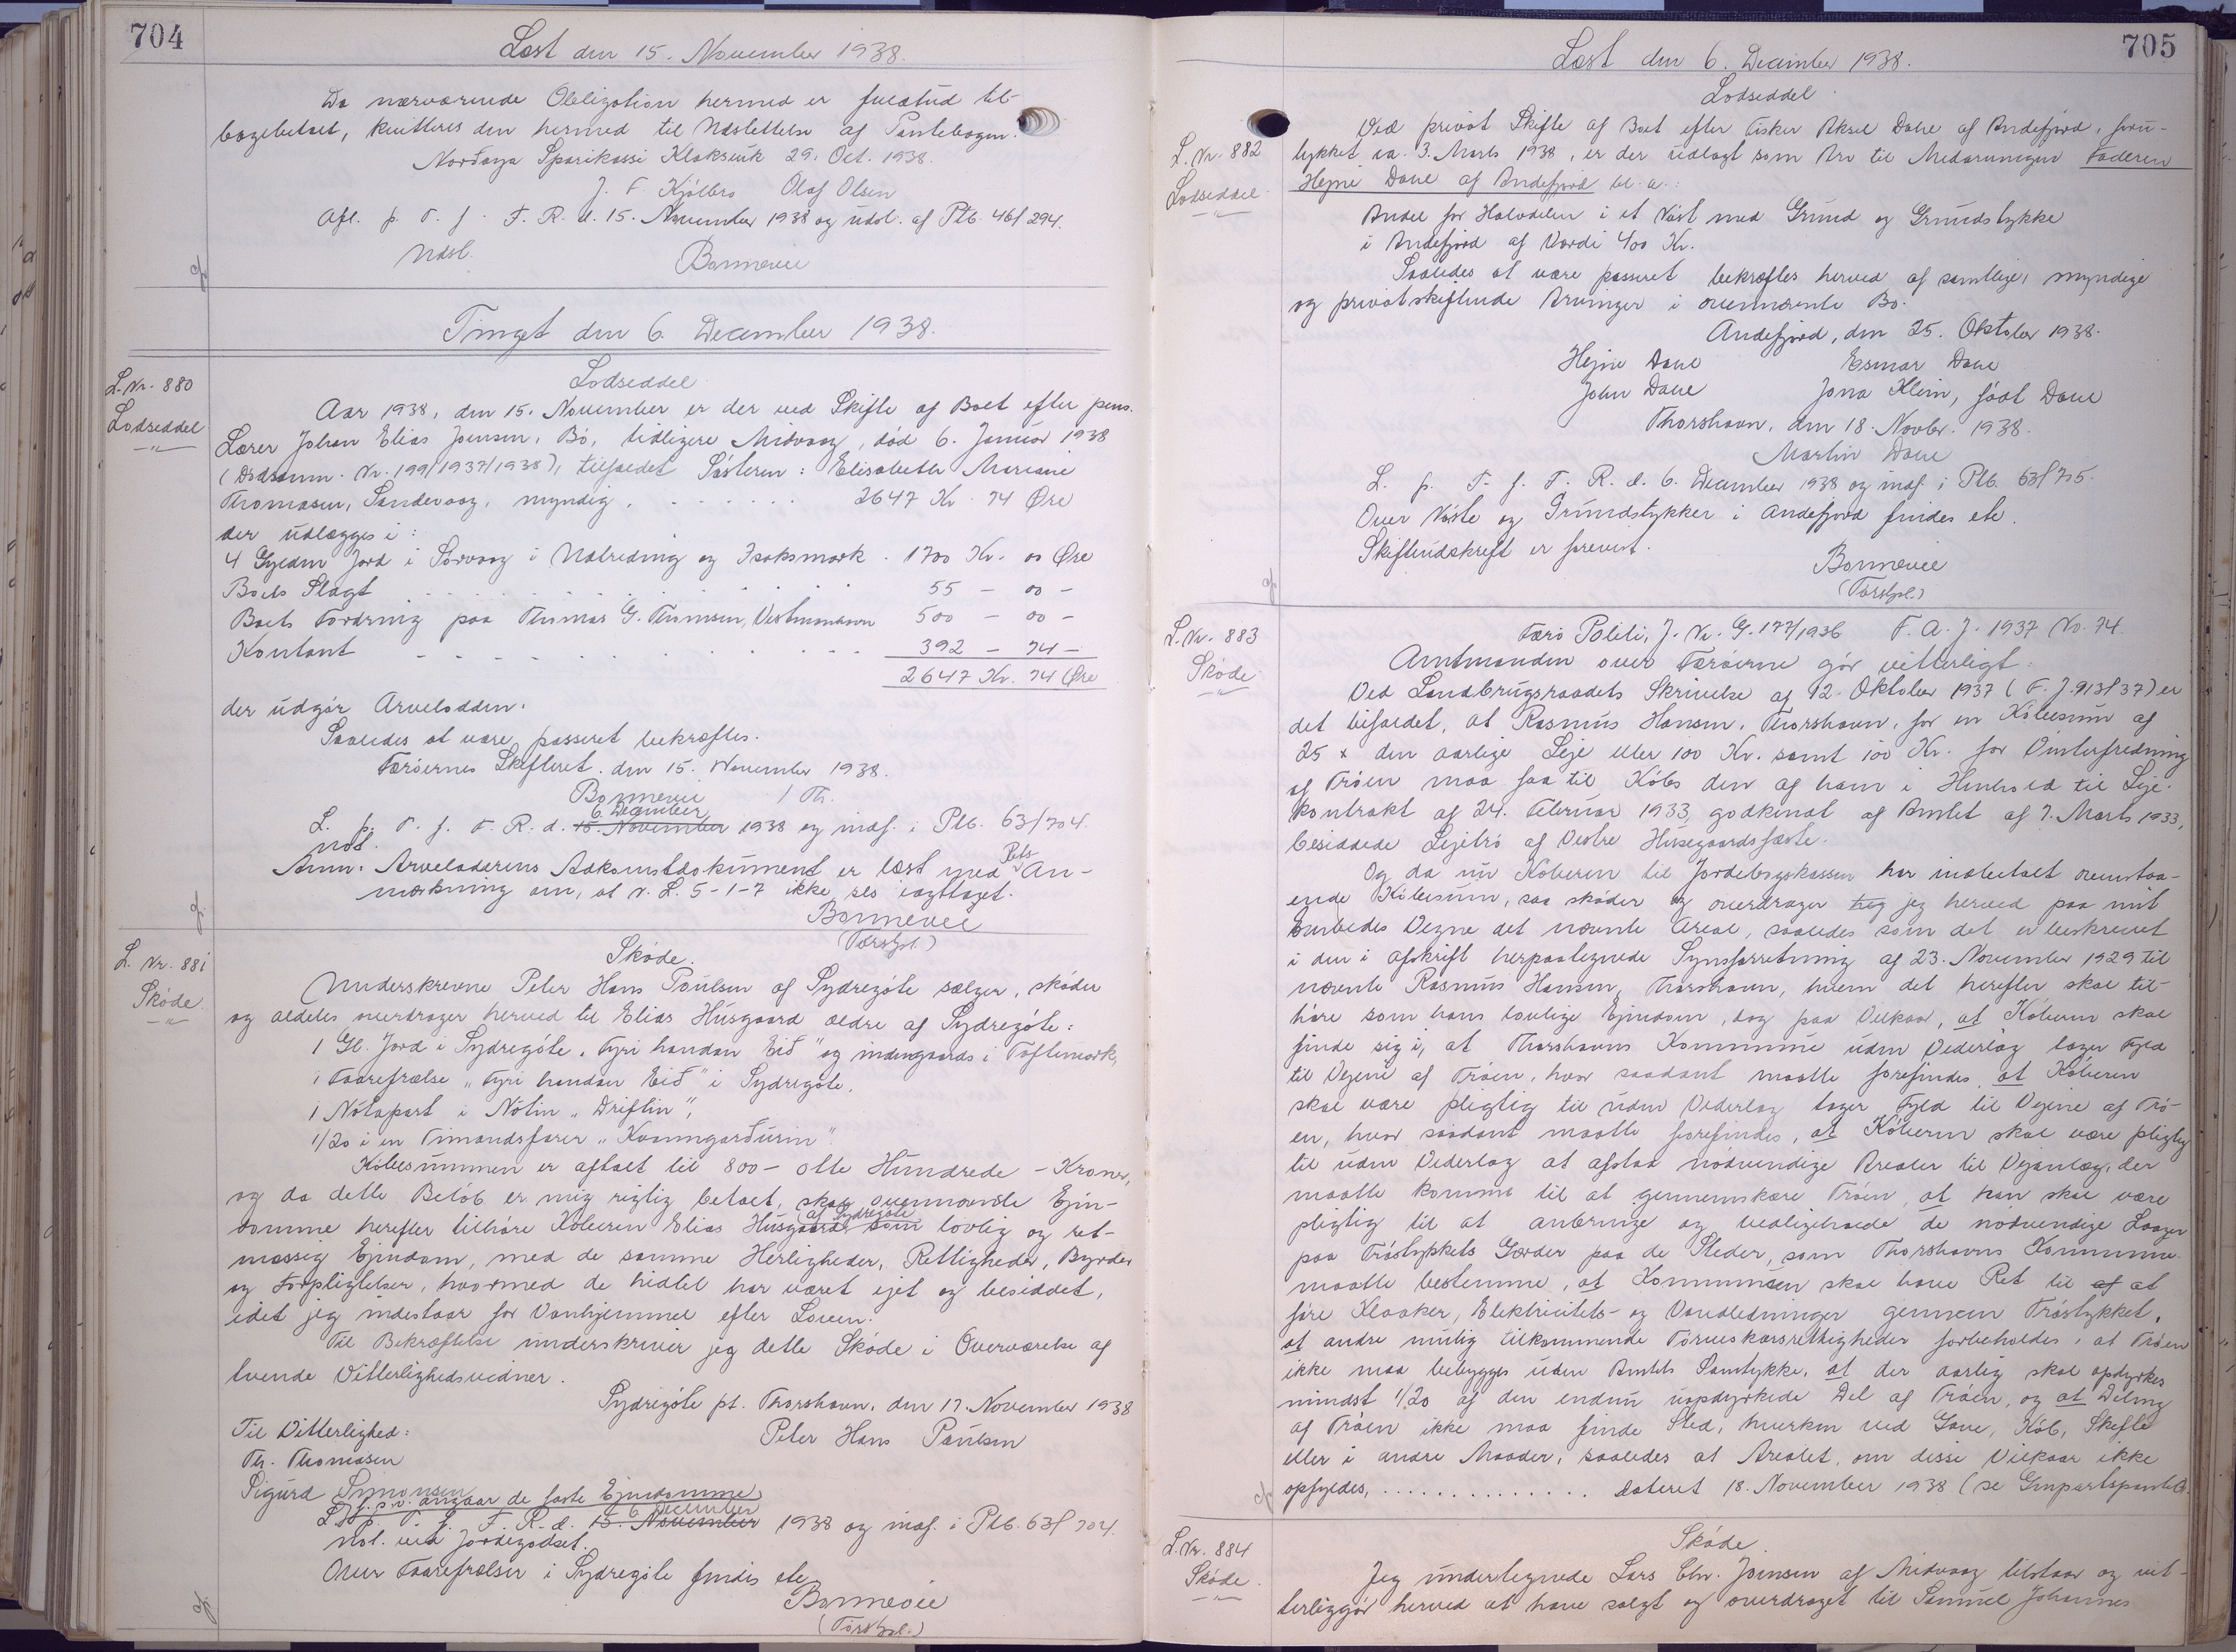 704
Læst den 15. November 1938.
Da nærværende Obligation hermed er fuldtud til-
bagebetalt, kvitteres den hermed til Udslettelse af Pantebogen.
Norðoya Sparikassi Klaksvik 29. Oct. 1938.
J. F. Kjølbro Olaf Olsen
Afl. p. T. f. F. R. d. 15. November 1938 og udsl. af Ptb. 46/294.
Udsl.
Bonnevie
Tinget den 6. December 1938.
L. Nr. 880
Lodseddel
Lodseddel
Aar 1938, den 15. November er der ved Skifte af Boet efter pens.
Lærer Johan Elias Joensen, Bø, tidligere Midvaag, død 6. Januar 1938
(Dødsanm. Nr. 199/1937/1938), tilfaldet Søsteren: Elisabeth Mariane
Thomasen, Sandevaag, myndig, . . . . . . 2647 Kr. 74 Øre
der udlægges i:
4 Gylden Jord i Sørvaag i Uttreding og Isaksmørk . 1700 Kr. 00 Øre
Boets Slagt . . . . . . . . 55 — 00 —
Boets Fordring paa Thomas G. Thomsen, Vestmanhavn 500 — 00 —
Kontant - - - - - . . . . . - - - 392 — 74 —
2647 Kr. 74 Øre
der udgør Arvelodden.
Saaledes at være passeret bekræftes.
Færøernes Skifteret, den 15. November 1938.
Bonnevie / Th.
6. December
L. p. T. f. F. R. d. 15. November 1938 og indf. i Ptb. 63/704.
Udl.
Anm. Arveladerens Adkomstdokument er læst med Rets An-
mærkning om, at N. L. 5-1-7 ikke ses iagttaget.
Bonnevie
(Førstpl.)
L. Nr. 881
Skøde
Skøde.
Underskrevne Peter Hans Poulsen af Sydregøte sælger, skøder
og aldeles overdrager herved til Elias Husgaard ældre af Sydregøte:
1 Gl. Jord i Sydregøte, "Fyri handan Eið" og indengaards i Toftemørk,
1 Faarefrælse "Fyri handan Eið" i Sydregøte,
1 Nótapart i Nótin "Driftin",
1/20 i en Timandsfarer "Kvanngarðurin".
Købesummen er aftalt til 800 — otte Hundrede — Kroner,
og da dette Beløb er mig rigtig betalt, skal ovennævnte Ejen-
domme herefter tilhøre Køberen Elias Husgaard af Sydregøte som lovlig og ret-
mæssig Ejendom, med de samme Herligheder, Rettigheder, Byrder
og Forpligtelser, hvormed de hidtil har været ejet og besiddet,
idet jeg indestaar for Vanhjemmel efter Loven.
Til Bekræftelse underskriver jeg dette Skøde i Overværelse af
tvende Vitterlighedsvidner.
Sydregøte pt. Thorshavn, den 17. November 1938
Til Vitterlighed: Peter Hans Poulsen
Th. Thomasen
Sigurd Simonsen
f. s. v. angaar de faste Ejendomme
L. p. T. f. F. R. d. 15. November 6. December 1938 og indf. i Ptb. 63/704.
Udl. ved Jordegodset.
Over Faarefrælser i Sydregøte findes ete
Bonnevie
(Førstpl.)
705
Læst den 6. December 1938.
L. Nr. 882
Lodseddel
Lodseddel
Ved privat Skifte af Boet efter Fisker Aksel Dane af Andefjord, foru-
lykket ca. 3. Marts 1938, er der udlagt som Arv til Medarvingen Faderen
Hejne Dane af Andefjord bl. a.:
Andel for Halvdelen i et Nøst med Grund og Grundstykke
i Andefjord af Værdi 400 Kr.
Saaledes at være passeret bekræftes herved af samtlige, myndige
og privatskiftende Arvinger i ovennævnte Bo.
Andefjord, den 25. Oktober 1938.
Hejne Dane Esmar Dane
John Dane Jona Klein, født Dane
Thorshavn, den 18. Novbr. 1938.
Martin Dane
L. p. T. f. F. R. d. 6. December 1938 og indf. i Ptb. 63/705.
Over Nøste og Grundstykker i Andefjord findes ete.
Skifteudskrift er forevist.
Bonnevie
(Førstpl.)
L. Nr. 883
Skøde
Færø Politi, J. Nr. G. 177/1936 F. A. J. 1937 No. 74.
Amtmanden over Færøerne gør vitterligt:
Ved Landbrugsraadets Skrivelse af 12. Oktober 1937 (F. J. 913/37) er
det tilfaldet, at Rasmus Hansen, Thorshavn, for en Købesum af
25 x den aarlige Leje eller 100 Kr. samt 100 Kr. for Vinterfredning
af Trøen maa faa til Købs den af ham i Henhold til Leje-
kontrakt af 24. Februar 1933, godkendt af Amtet af 7. Marts 1933,
besiddede Lejetrø af Vestre Husegaardsfæste.
Og da nu Køberen til Jordebogskassen har indbetalt ovenstaa-
ende Købesum, saa skøder og overdrager jeg herved paa mit
Embedes Vegne det nævnte Areal, saaledes som det er beskrevet
i den i afskrift herpaategnede Synsforretning af 23. November 1929 til
nævnte Rasmus Hansen, Thorshavn, hvem det herefter skal til-
høre som hans lovlige Ejendom, dog paa Vilkaar, at Køberen skal
finde sig i, at Thorshavns Kommune uden Vederlag tager Fyld
til Vejene af Trøen, hvor saadant maatte forefindes, at Køberen
skal være pligtig til uden Vederlag tager Fyld til Vejene af Trø-
en, hvor saadant maatte forefindes, at Køberen skal være pligtig
til uden Vederlag at afstaa nødvendige Arealer til Vejanlæg, der
maatte komme til at gennemskære Trøen, at han skal være
pligtig til at anbringe og vedligeholde de nødvendige Laager
paa Trøstykkets Gærder paa de Steder, som Thorshavns Kommune
maatte bestemme, at Kommunen skal have Ret til af at
føre Kloaker, Elektricitets- og Vandledninger gennem Trøstykket,
at andre mulig tilkommende Tørveskærsrettigheder forbeholdes, at Trøen
ikke maa bebygges uden Amtets Samtykke, at der aarlig skal opdyrkes
mindst 1/20 af den endnu uopdyrkede Del af Trøen, og at Deling
af Trøen ikke maa finde Sted, hverken ved Gave, Køb, Skifte
eller i andre Maader, saaledes at Arealet, om disse Vilkaar ikke
opfyldes, . . . . . . . . . . . . . . Dateret 18. November 1938 (se Genpartspantb.
L. Nr. 884
Skøde
Skøde.
Jeg undertegnede Lars Chr. Joensen af Midvaag tilstaar og vit-
terliggør herved at have solgt og overdraget til Samuel Johannes